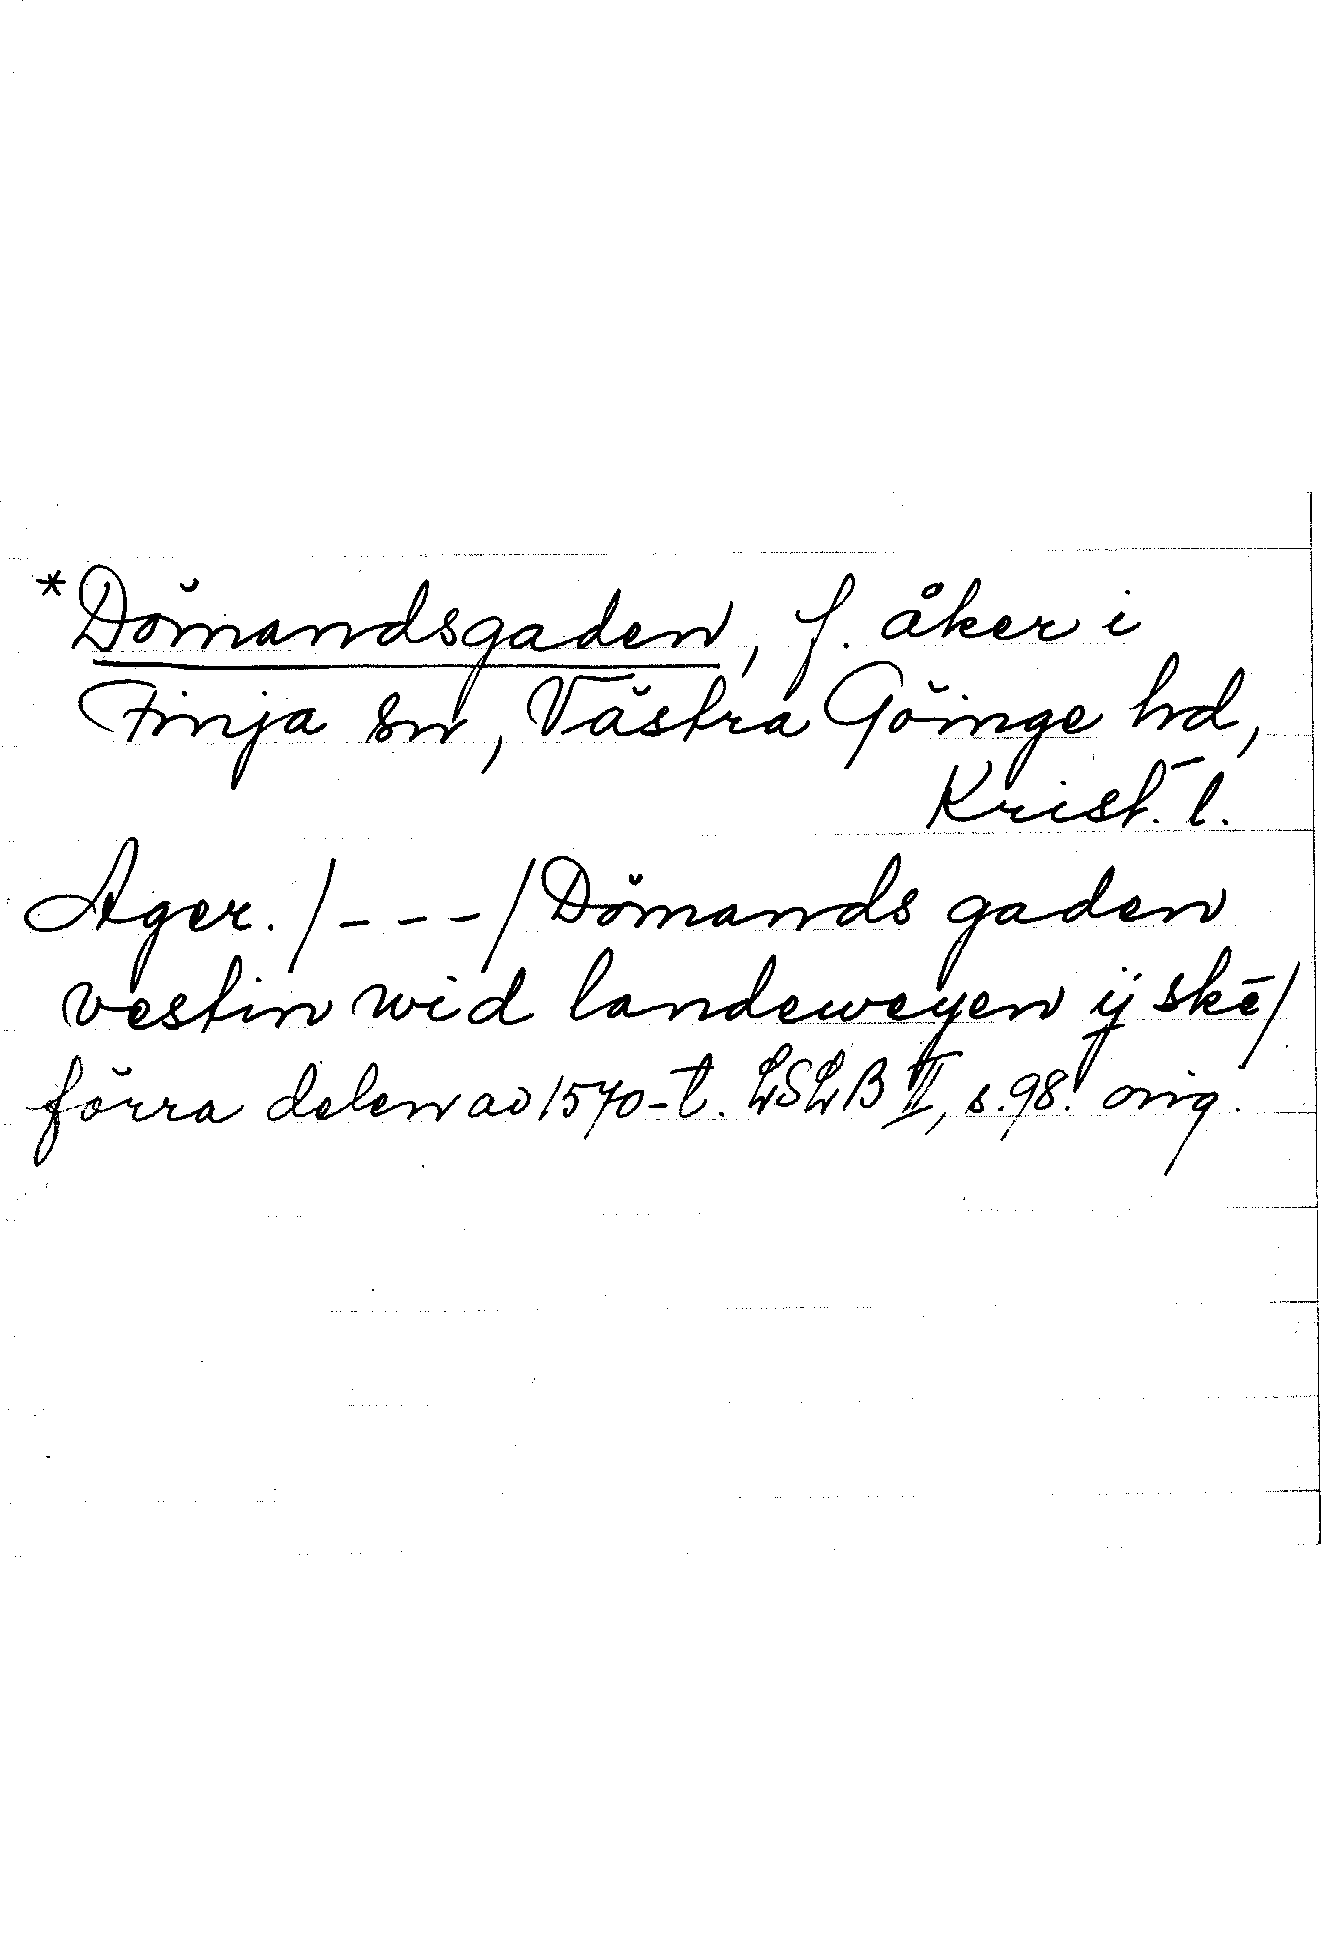 *Dömandsgaden, f. åker i
Finja sn, Västra Göinge hd,
Krist. l.
Ager. /---/ Dömands gaden
vestin wid landeweyen ij skē/
förra delen av 1570-t. LSLB II, s. 98. orig.